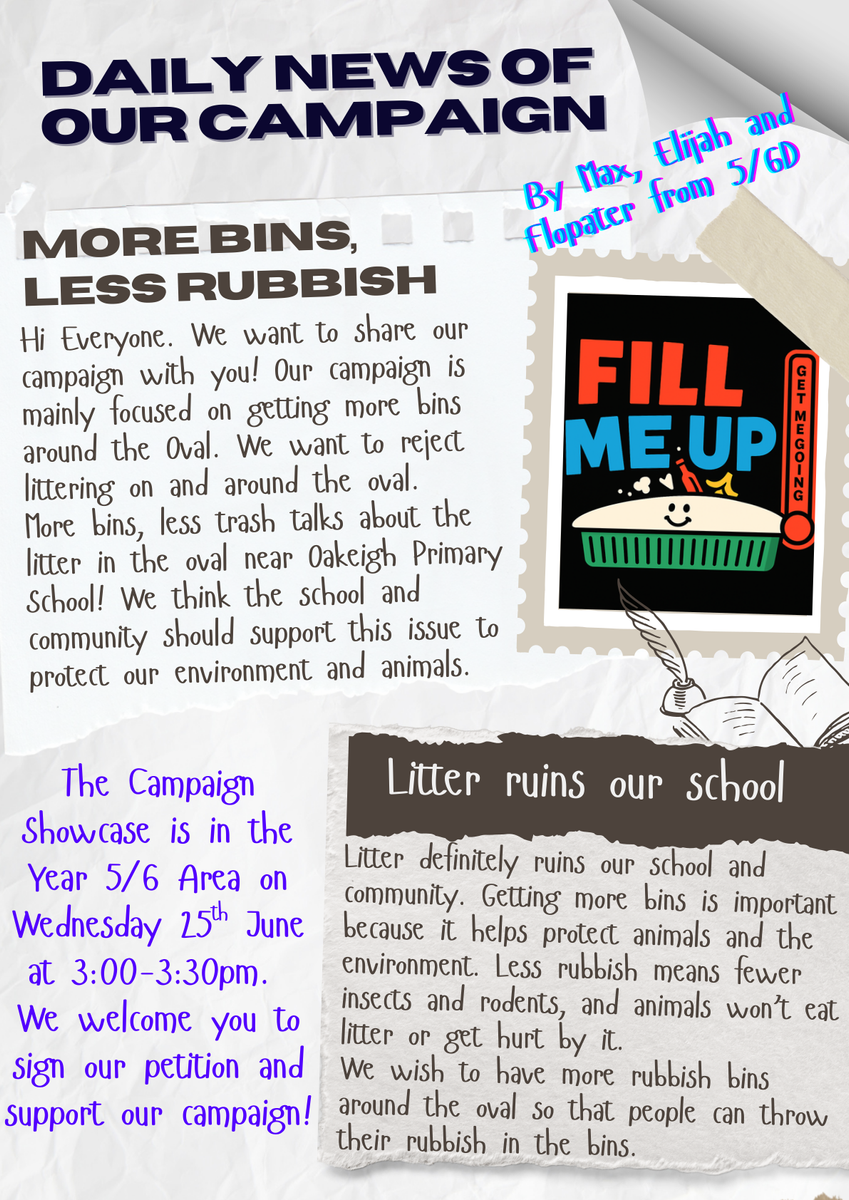 DAILY NEWS OF
OUR CAMPAIGN
By Max, Elijah and
Flopater from 5/6D
MORE BINS,
LESS RUBBISH
Hi Everyone. We want to share our
campaign with you! Our campaign is
mainly focused on getting more bins
around the Oval. We want to reject
littering on and around the oval.
More bins, less trash talks about the
litter in the oval near Oakeigh Primary
School! We think the school and
community should support this issue to
protect our environment and animals.
FILL
ME UP
GET ME GOING
The Campaign
Showcase is in the
Year 5/6 Area on
Wednesday 25th June
at 3:00-3:30pm.
We welcome you to
sign our petition and
support our campaign!
Litter ruins our school
Litter definitely ruins our school and
community. Getting more bins is important
because it helps protect animals and the
environment. Less rubbish means fewer
insects and rodents, and animals won't eat
litter or get hurt by it.
We wish to have more rubbish bins
around the oval so that people can throw
their rubbish in the bins.